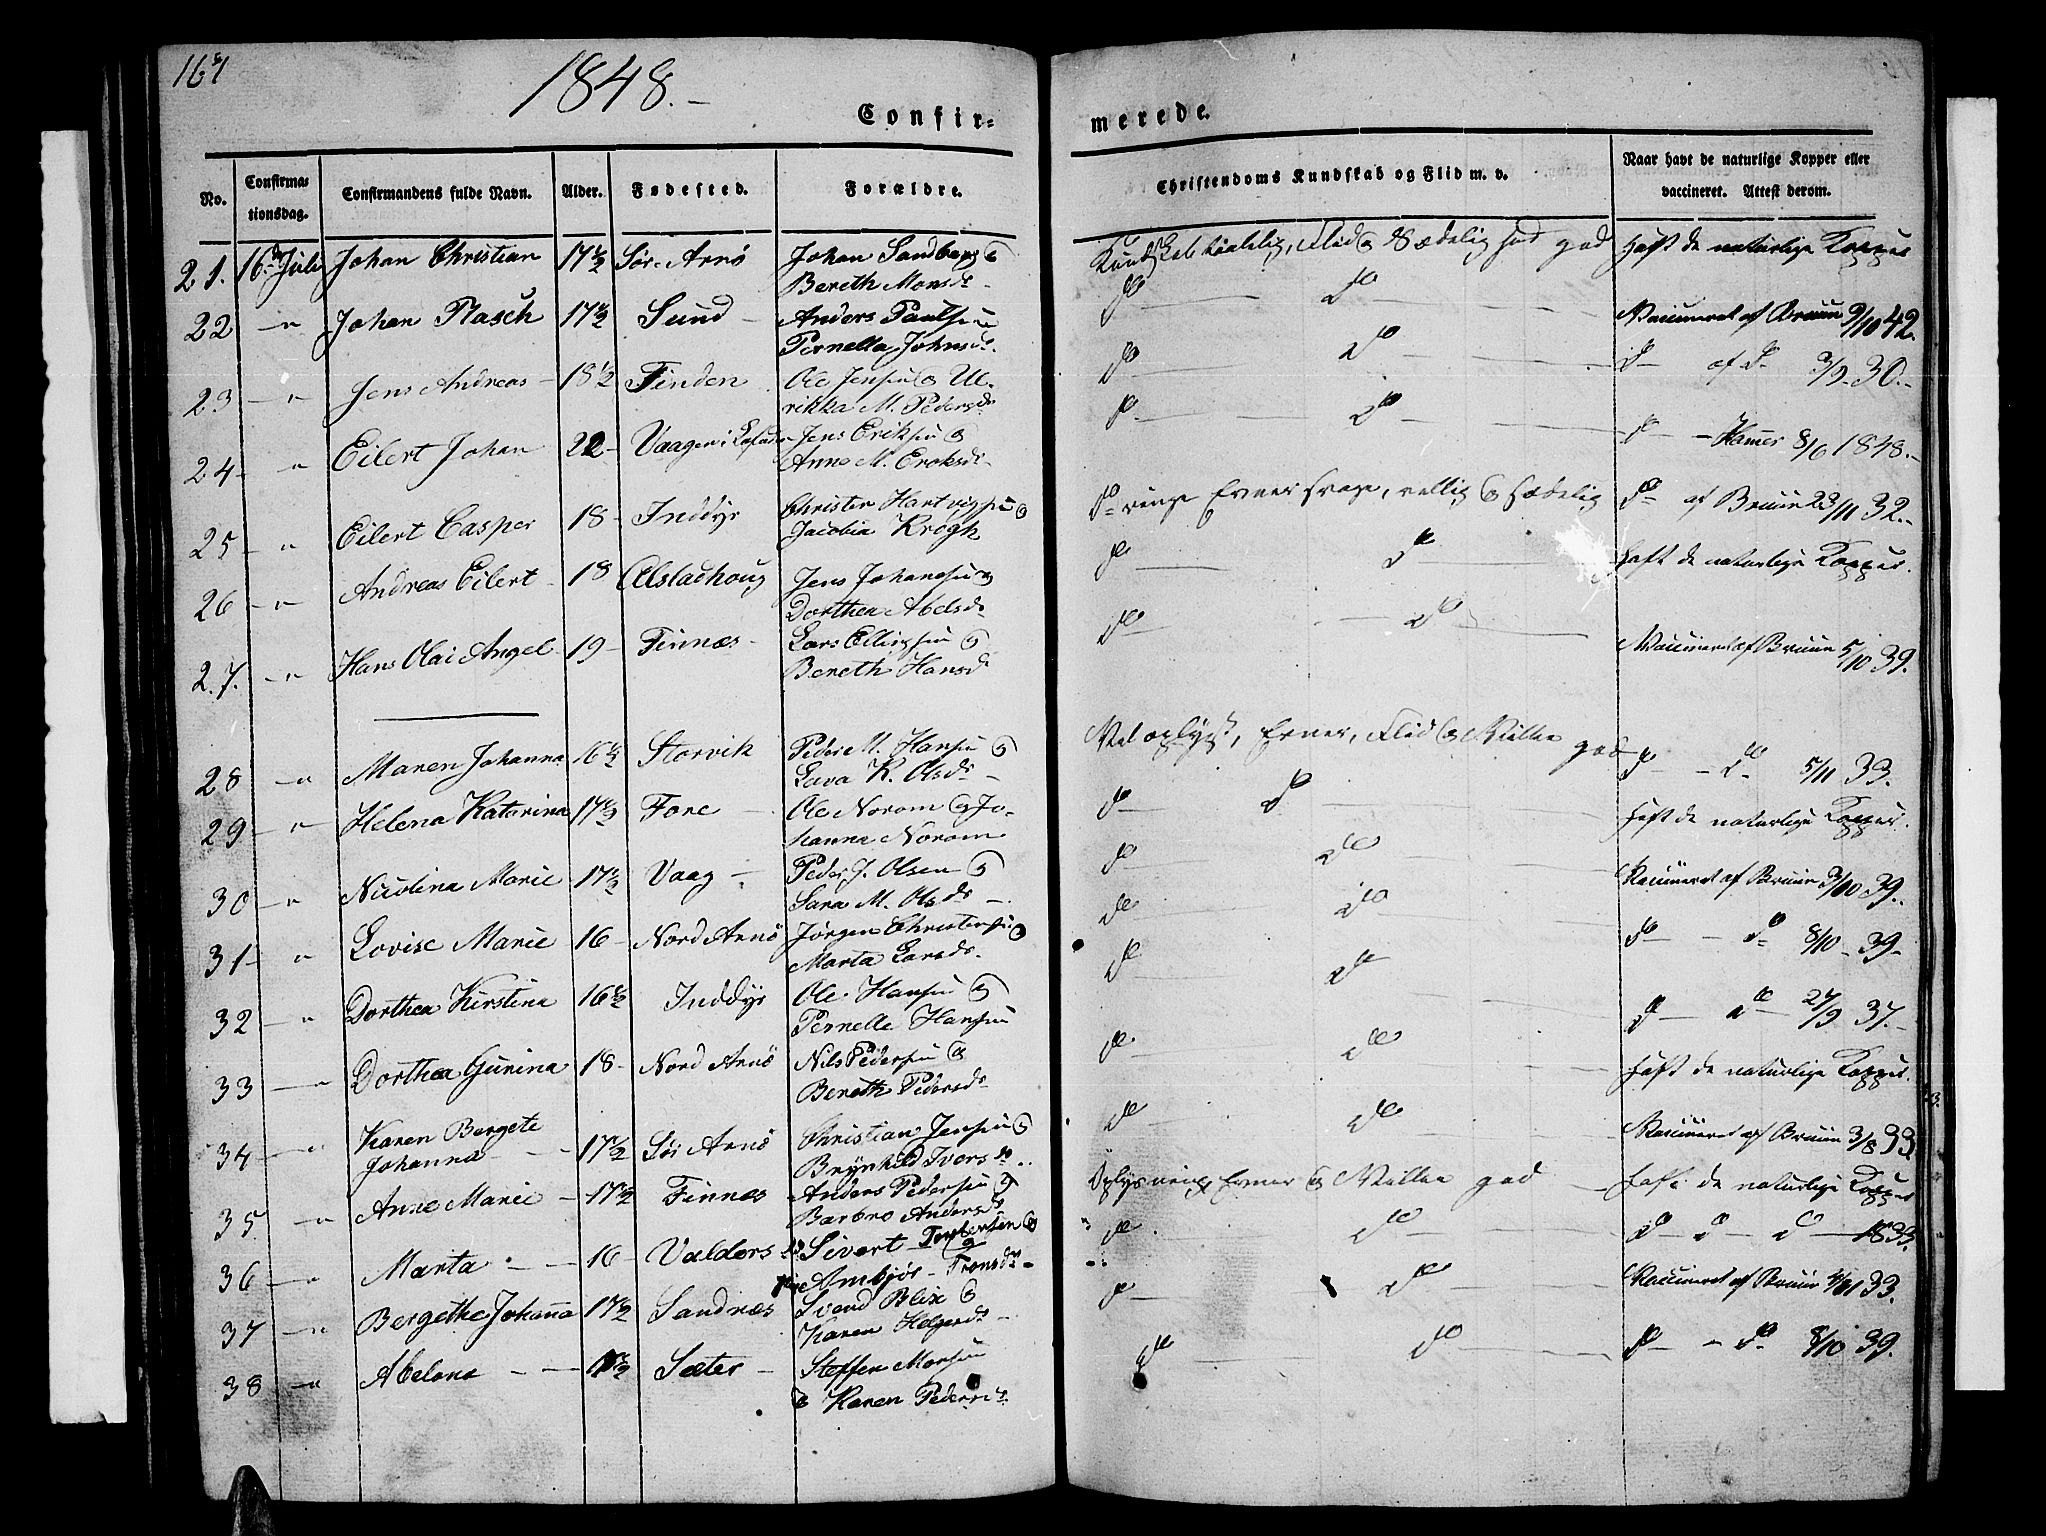 1848.-
Confir=
merede.
No.
Confirma-
tionsdag.
Confirmandens fulde Navn.
Alder.
Fødested.
Forældre.
Christendoms Kundskab og Flid m. v.
Naar havt de naturlige Kopper eller
vaccineret. Attest derom.
21. 16de Juli Johan Christian 17½ Sör Arnö Johan Sandberg og
Bereth Monsd.
Kundskab taalelig, Flid og Sædelighed god Haft de naturlige Kopper
22 -"- Johan Plasch 17½ Sund - Anders Paulsen
Pernella Johnsd.
do do Vaccineret af Bruun 9/10 42.
23 -"- Jens Andreas - 18½ Finden Ole Jensen og Ul-
rikka M. Pedersd.
do do do af do 3/9 30.-
24 -"- Eilert Johan 22 - Vaagen i Lofoden Jens Eriksen og
Anne M. Eriksd.
do do do - Hamer 8/6 1848.-
25 -"- Eilert Casper 18 - Inddyr Christen Hartvigsen og
Jacobia Krogh
do ringe Evner svage, vellig og sædelig do af Bruun 23/11 32.-
26 -"- Andreas Eilert - 18 Alstadhoug Jens Johansen og
Dorthea Abelsd.
do do Haft de naturlige Kopper.
27. -"- Hans Olai Angel 19 - Finnæs - Lars Ellingsen og
Bereth Hansd.
do do Vaccineret af Bruun 5/10 39.
28 -"- Maren Johanna 16½ Storvik Peder M. Hansen og
Lava K. Olsd. -
Vel oplyst, Evner, Flid og Villie god do - do 5/11 33.
29 -"- Helena Katarina 17½ Fore - Ole Norom og Jo-
hanna Norom
do do Haft de naturlige Kopper.
30 -"- Nicolina Marie 17½ Vaag - Peder J. Olsen og
Sara M. Olsd. -
do do Vaccineret af Bruun 3/10 39.
31 -"- Lovise Marie 16 - Nord Arnö Jörgen Christensen og
Marta Larsd.
do do do - do 8/10 - 39 -
32 -"- Dorthea Kirstina 16½ Inddyr Ole Hansen og
Pernelle Hansen
do do do - do 27/9 37.-
33 -"- Dorthea Gurina 18 - Nord Arnö Nils Pedersen og
Bereth Pedersd.
do do Haft de naturlige Kopper.
34 -"- Karen Bergete
Johanna - - 17½ Sör Arnö Christian Jensen og
Brynhild Iversd.
do do Vaccineret af Bruun 3/8 33.
35 -"- Anne Marie - 17½ Finnæs Anders Pedersen og
Barbro Andersd.
Oplysning, Evner og Villie god - Haft de naturlige Kopper
36 -"- Marta - - 16 - Valders Sivert
Ambjör - Tronsd.
do do do do do 1833.
37 -"- Bergethe Johanna 17½ Sandnæs Svend Blix og
Karen Holgersd.
do do Vaccineret af Bruun 33.
38 -"- Abelona - - Sæter - Steffen Monsen
og Karen Pedersd.
do do do - do 8/10 39.